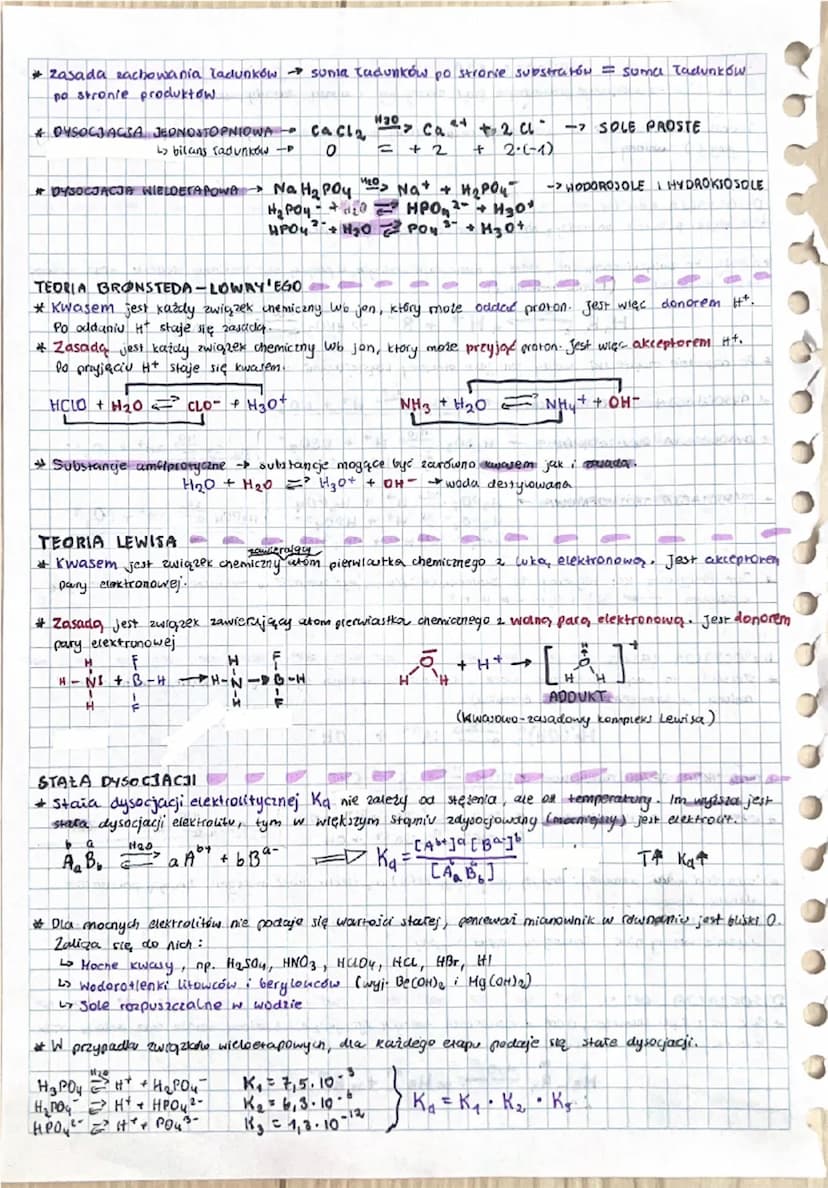 * Zasada zachowania ładunków → suma ładunków po stronie substratów = suma ładunków
po stronie produktów
* DYSOCJACJA JEDNOSTOPNIOWA → CaCl₂ H₂O⇒ Ca²⁺ + 2 Cl⁻ → SOLE PROSTE
↳ bilans ładunków → 0 = +2 + 2·(-1)
* DYSOCJACJA WIELOETAPOWA → NaH₂PO₄ H₂O⇒ Na⁺ + H₂PO₄⁻ → WODOROSOLE I HYDROKSOSOLE
H₂PO₄⁻ + H₂O ⇌ HPO₄²⁻ + H₃O⁺
HPO₄²⁻ + H₂O ⇌ PO₄³⁻ + H₃O⁺
TEORIA BRØNSTEDA-LOWRY'EGO
* Kwasem jest każdy związek chemiczny lub jon, który może oddać proton. Jest więc donorem H⁺.
Po oddaniu H⁺ staje się zasadą.
* Zasadą jest każdy związek chemiczny lub jon, który może przyjąć proton. Jest więc akceptorem H⁺.
Po przyjęciu H⁺ staje się kwasem.
HClO + H₂O ⇌ ClO⁻ + H₃O⁺ NH₃ + H₂O ⇌ NH₄⁺ + OH⁻
* Substancje amfiprotyczne → substancje mogące być zarówno kwasem jak i zasadą.
H₂O + H₂O ⇌ H₃O⁺ + OH⁻ → woda destylowana
TEORIA LEWISA
zawierający
* Kwasem jest związek chemiczny atom pierwiastka chemicznego z luką elektronową. Jest akceptorem
pary elektronowej.
* Zasadą jest związek zawierający atom pierwiastka chemicznego z wolną parą elektronową. Jest donorem
pary elektronowej
H F H F
H-N| + B-H → H-N→B-H
H F H F
O + H⁺ → [ H O ]⁺
H H H H
ADDUKT
(kwasowo-zasadowy kompleks Lewisa)
STAŁA DYSOCJACJI
* Stała dysocjacji elektrolitycznej Kd nie zależy od stężenia, ale od temperatury. Im wyższa jest
stała dysocjacji elektrolitu, tym w większym stopniu zdysocjowany (mocniejszy) jest elektrolit.
AₐB_b H₂O⇌ aA^b+ + bB^a- ⇒ Kd = [A^b+]^a [B^a-]^b / [AₐB_b] T↑ Kd↑
* Dla mocnych elektrolitów nie podaje się wartości stałej, ponieważ mianownik w równaniu jest bliski 0.
Zalicza się do nich:
↳ Mocne kwasy, np. H₂SO₄, HNO₃, HClO₄, HCl, HBr, HI
↳ Wodorotlenki litowców i berylowców (wyj. Be(OH)₂ i Mg(OH)₂)
↳ Sole rozpuszczalne w wodzie
* W przypadku związków wieloetapowych, dla każdego etapu podaje się stałe dysocjacji.
H₃PO₄ H₂O⇌ H⁺ + H₂PO₄⁻ K₁ = 7,5·10⁻³
H₂PO₄⁻ ⇌ H⁺ + HPO₄²⁻ K₂ = 6,3·10⁻⁸ } Kd = K₁ · K₂ · K₃
HPO₄²⁻ ⇌ H⁺ + PO₄³⁻ K₃ = 1,3·10⁻¹²